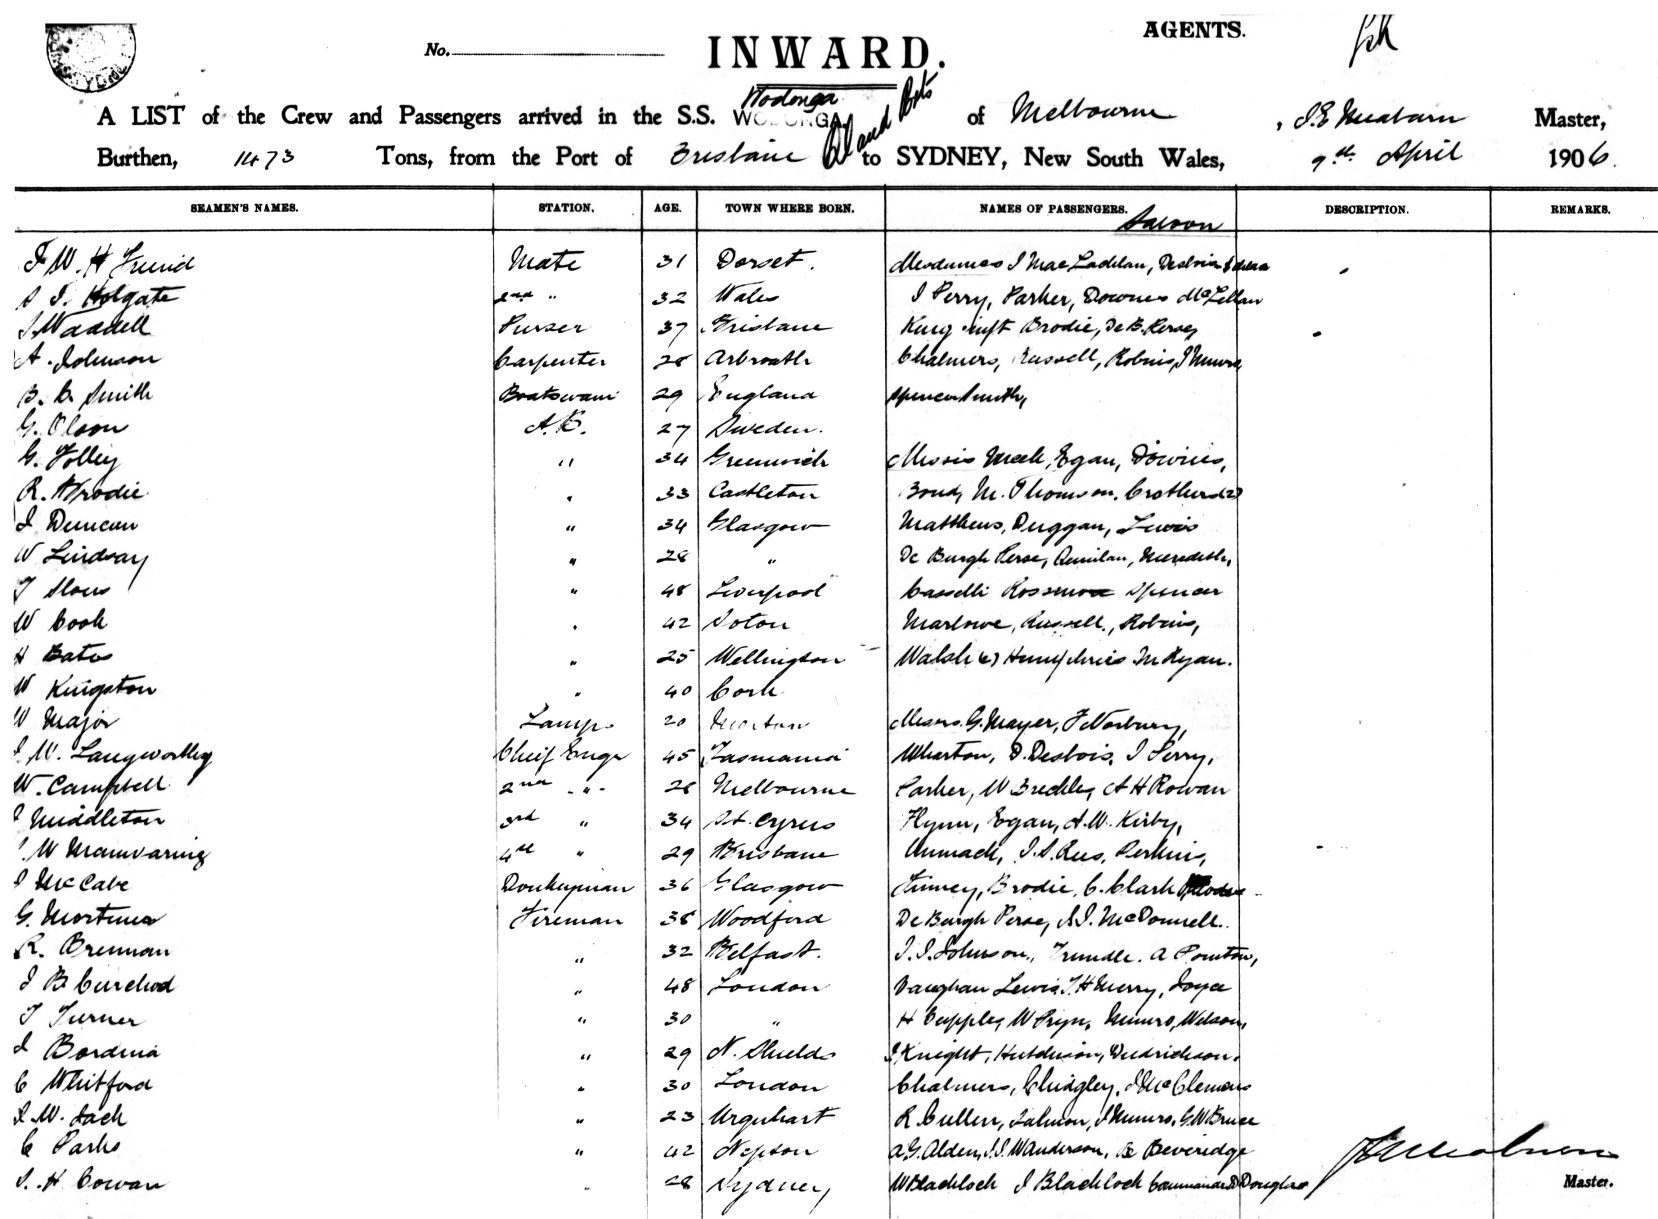 AGENTS.
No.
INWARD.
Wodonga
A LIST of the Crew and Passengers arrived in the S.S. WODONGA of Melbourne, Master,
Burthen, 1473 Tons, from the Port of Brisbane to SYDNEY, New South Wales, 9th April 1906.
SEAMEN'S NAMES. STATION. AGE. TOWN WHERE BORN. NAMES OF PASSENGERS. DESCRIPTION. REMARKS.
Saloon
F W. H Mate 31 Dorset. J MacLachlan,
Holgate 2nd " 32 Wales J Perry, Parker, Downes McLellan
J Waddell Purser 37 Brisbane King Brodie, De B. Perse,
A. Johnson Carpenter 28 Arbroath Chalmers, Russell, Robins, J Munro,
B. C. Smith Boatswain 29 England Spencer Smith,
G. Olson A.B. 27 Sweden.
G. Folley " 34 Greenwich Messrs Meek, Egan, Downes,
R. Brodie " 33 Castleton Bond, M. Thomson, Crothers (2)
J. Duncan " 34 Glasgow Matthews, Duggan, Lewis
W Lindsay " 28 " De Burgh Perse, Quinlan, Meredith,
T " 48 Liverpool Casselli Rossmore Spencer
W Cook " 42 Soton Marlowe, Russell, Robins,
H Bates " 25 Wellington Walsh Humphries M Ryan.
W Kingston " 40 Cork
W Major Lamps 20 Messrs. G. Mayer, F Norbury,
J. W. Langworthy Chief Engr 45 Tasmania Wharton, D. Desbois, J Perry,
W. Campbell 2nd " 28 Melbourne Parker, W A H Rowan
Middleton 3rd " 34 St. Cyrus Flynn, Egan, A. W. Kirby,
W Mainwaring 4th " 29 Brisbane Unmack, J. S. Rees, Perkins,
J McCabe Donkeyman 36 Glasgow Finney, Brodie, C. Clark
G. Mortimer Fireman 38 Woodford De Burgh Perse, McDonnell.
R. Brennan " 32 Belfast. J. J. Johnson, Trundle. A Pointon,
J B. " 48 London Vaughan Lewis, J. H Merry, Joyce
T Turner " 30 " H Cupples, W Pryn, Munro, Wilson,
J " 29 N. Shields J Knight, Hutchison, Diedrichson,
C Whitford " 30 London Chalmers, Chidgley, J McClemens
J. W. Jack " 23 Urquhart R. Cullen, Salmon, J Munro, G. W Bruce
C Parks " 42 A. G. Alden, Beveridge
J. H Cowan " 28 Sydney W Blacklock J Blacklock Douglas
Master.